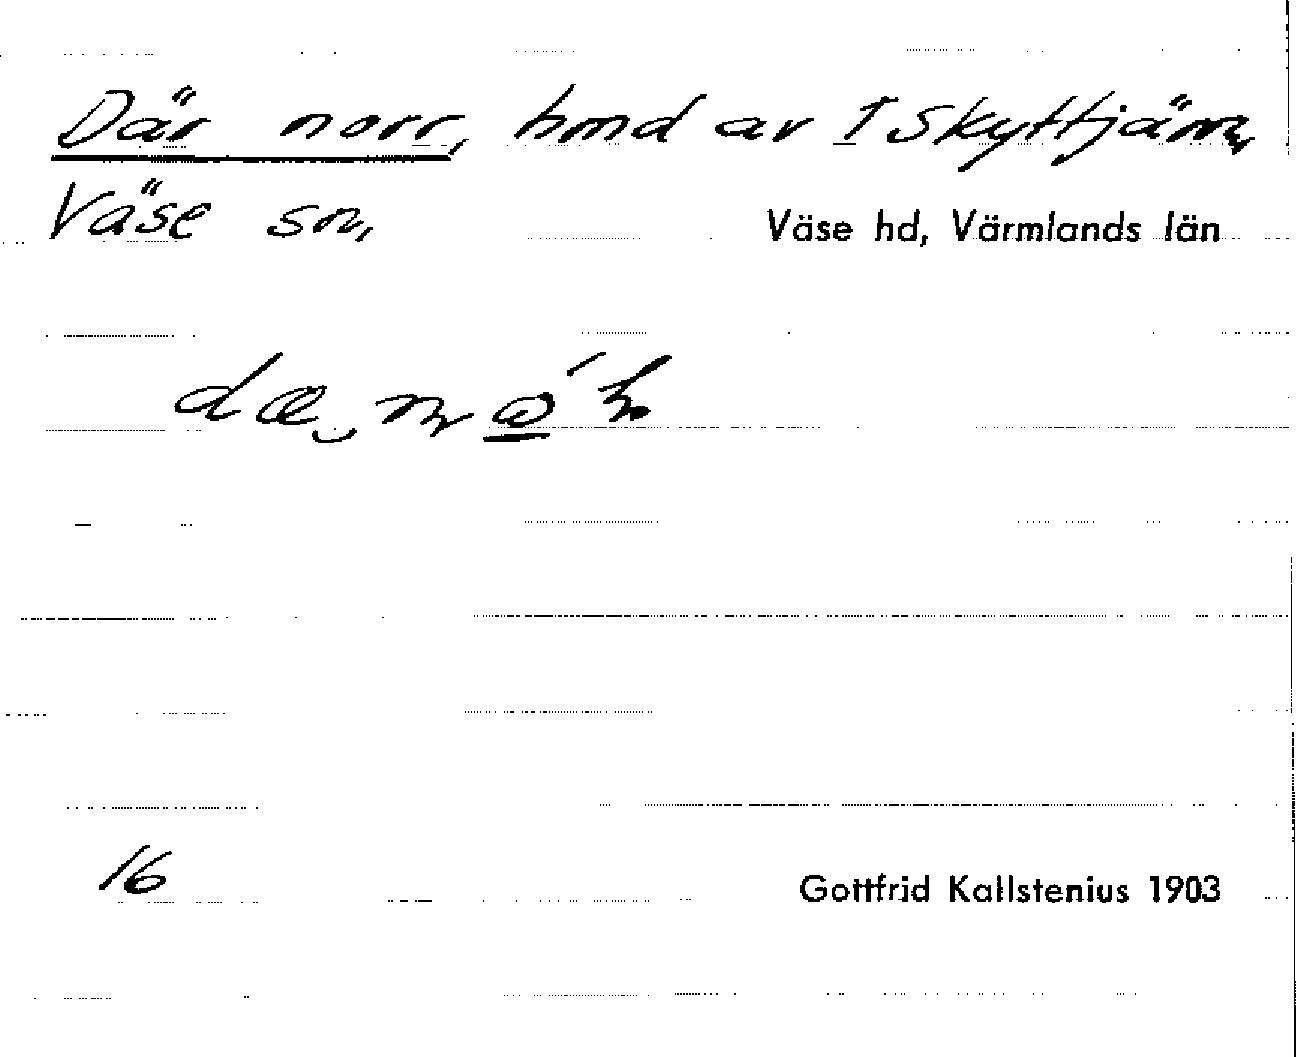 Där norr, hmd av 1 Skyttjärn,
Väse sn, Väse hd, Värmlands län
16 Gottfrid Kallstenius 1903